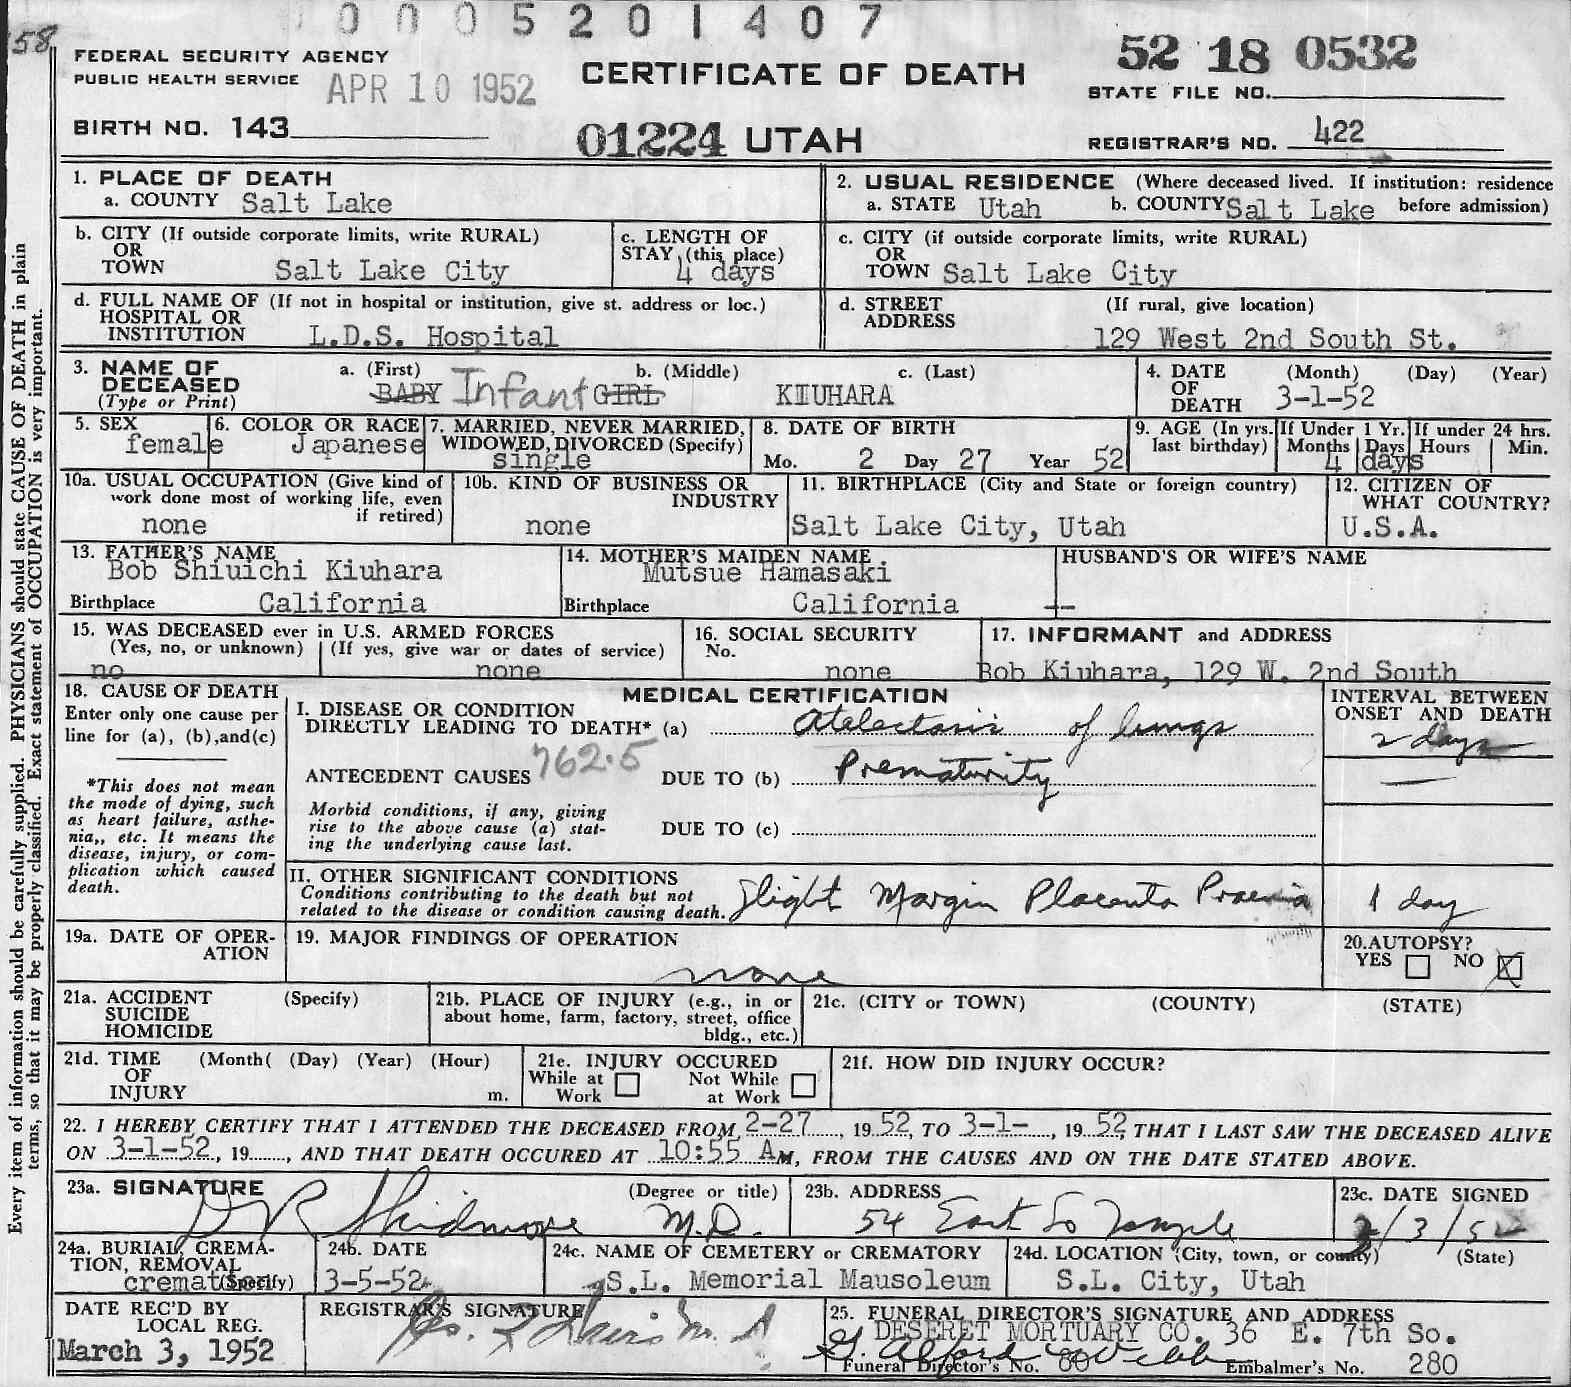 0005201407
58
FEDERAL SECURITY AGENCY
PUBLIC HEALTH SERVICE
APR 10 1952
CERTIFICATE OF DEATH
52 18 0532
STATE FILE NO.
BIRTH NO. 143
01224 UTAH
REGISTRAR'S NO. 422
1. PLACE OF DEATH
a. COUNTY Salt Lake
2. USUAL RESIDENCE (Where deceased lived. If institution: residence
a. STATE Utah b. COUNTY Salt Lake before admission)
b. CITY (If outside corporate limits, write RURAL)
OR
TOWN Salt Lake City
c. LENGTH OF
STAY (this place)
4 days
c. CITY (if outside corporate limits, write RURAL)
OR
TOWN Salt Lake City
d. FULL NAME OF (If not in hospital or institution, give st. address or loc.)
HOSPITAL OR
INSTITUTION L.D.S. Hospital
d. STREET (If rural, give location)
ADDRESS
129 West 2nd South St.
3. NAME OF
DECEASED
(Type or Print)
a. (First) b. (Middle) c. (Last)
BABY Infant GIRL KIUHARA
4. DATE (Month) (Day) (Year)
OF
DEATH 3-1-52
5. SEX
female
6. COLOR OR RACE
Japanese
7. MARRIED, NEVER MARRIED,
WIDOWED, DIVORCED (Specify)
single
8. DATE OF BIRTH
Mo. 2 Day 27 Year 52
9. AGE (In yrs. last birthday)
If Under 1 Yr.
Months Days
4 days
If under 24 hrs.
Hours Min.
10a. USUAL OCCUPATION (Give kind of
work done most of working life, even
if retired)
none
10b. KIND OF BUSINESS OR
INDUSTRY
none
11. BIRTHPLACE (City and State or foreign country)
Salt Lake City, Utah
12. CITIZEN OF
WHAT COUNTRY?
U.S.A.
13. FATHER'S NAME
Bob Shiuichi Kiuhara
Birthplace California
14. MOTHER'S MAIDEN NAME
Mutsue Hamasaki
Birthplace California
HUSBAND'S OR WIFE'S NAME
--
15. WAS DECEASED ever in U.S. ARMED FORCES
(Yes, no, or unknown) (If yes, give war or dates of service)
no none
16. SOCIAL SECURITY
No.
none
17. INFORMANT and ADDRESS
Bob Kiuhara, 129 W. 2nd South
18. CAUSE OF DEATH
Enter only one cause per
line for (a), (b), and (c)
*This does not mean
the mode of dying, such
as heart failure, asthe-
nia,, etc. It means the
disease, injury, or com-
plication which caused
death.
MEDICAL CERTIFICATION
I. DISEASE OR CONDITION
DIRECTLY LEADING TO DEATH* (a) Atelectasis of lungs
762.5
ANTECEDENT CAUSES DUE TO (b) Prematurity
Morbid conditions, if any, giving
rise to the above cause (a) stat-
ing the underlying cause last.
DUE TO (c)
INTERVAL BETWEEN
ONSET AND DEATH
2 days
—
II. OTHER SIGNIFICANT CONDITIONS
Conditions contributing to the death but not
related to the disease or condition causing death.
Slight Margin Placenta Praevia
1 day
19a. DATE OF OPER-
ATION
19. MAJOR FINDINGS OF OPERATION
none
20. AUTOPSY?
YES NO X
21a. ACCIDENT (Specify)
SUICIDE
HOMICIDE
21b. PLACE OF INJURY (e.g., in or
about home, farm, factory, street, office
bldg., etc.)
21c. (CITY or TOWN) (COUNTY) (STATE)
21d. TIME (Month( (Day) (Year) (Hour)
OF
INJURY m.
21e. INJURY OCCURED
While at Work
Not While at Work
21f. HOW DID INJURY OCCUR?
22. I HEREBY CERTIFY THAT I ATTENDED THE DECEASED FROM 2-27, 19 52, TO 3-1-, 19 52, THAT I LAST SAW THE DECEASED ALIVE
ON 3-1-52, 19......, AND THAT DEATH OCCURED AT 10:55 AM, FROM THE CAUSES AND ON THE DATE STATED ABOVE.
23a. SIGNATURE (Degree or title)
D R Skidmore M.D.
23b. ADDRESS
54 East So Temple
23c. DATE SIGNED
3/3/52
24a. BURIAL, CREMA-
TION, REMOVAL
(Specify)
cremation
24b. DATE
3-5-52
24c. NAME OF CEMETERY or CREMATORY
S.L. Memorial Mausoleum
24d. LOCATION (City, town, or county) (State)
S.L. City, Utah
DATE REC'D BY
LOCAL REG.
March 3, 1952
REGISTRAR'S SIGNATURE
25. FUNERAL DIRECTOR'S SIGNATURE AND ADDRESS
DESERET MORTUARY CO. 36 E. 7th So.
Funeral Director's No. 60 Embalmer's No. 280
Every item of information should be carefully supplied. PHYSICIANS should state CAUSE OF DEATH in plain
terms, so that it may be properly classified. Exact statement of OCCUPATION is very important.